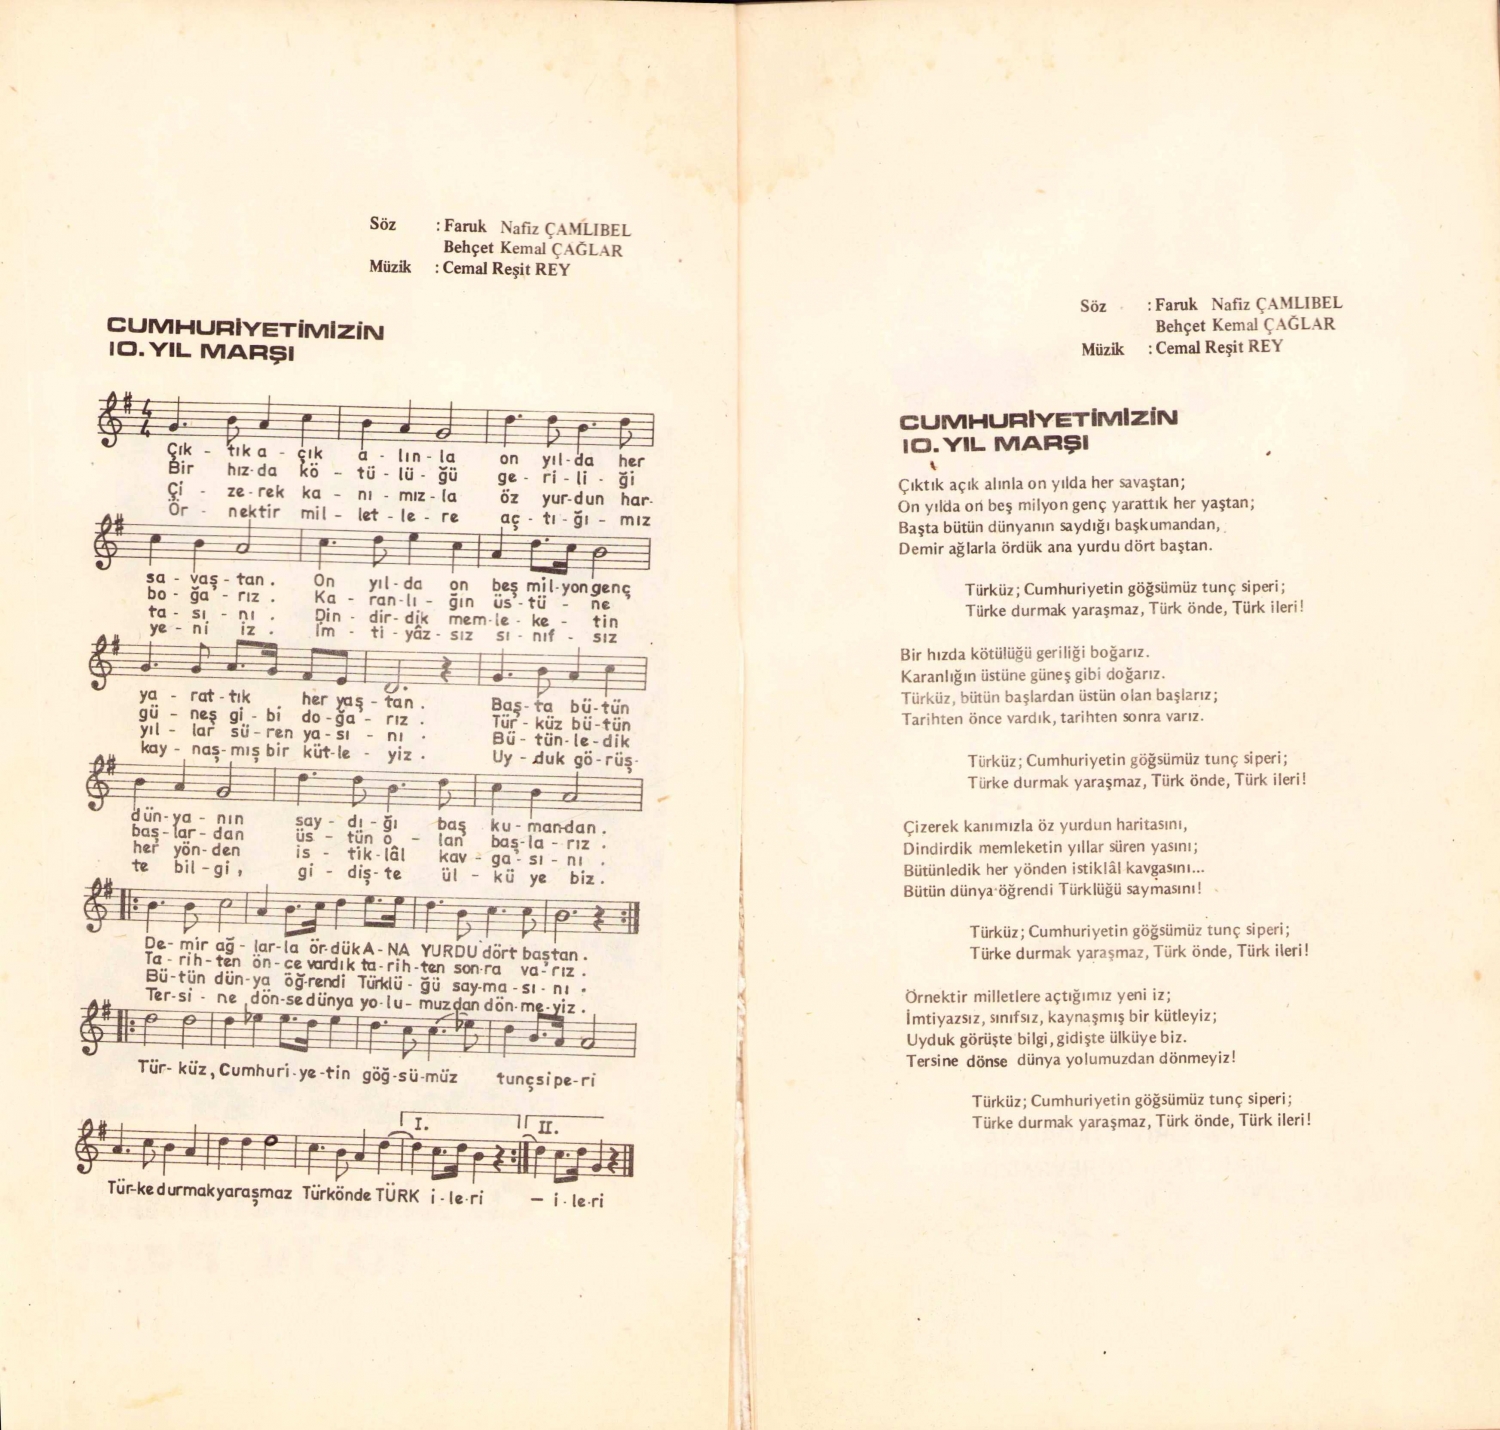 Söz : Faruk Nafiz ÇAMLIBEL
Behçet Kemal ÇAĞLAR
Müzik : Cemal Reşit REY
CUMHURİYETİMİZİN
10. YIL MARŞI
4
4
Çık - tık a - çık a - lın - la on yıl - da her
Bir hız - da kö - tü - lü - ğü ge - ri - li - ği
Çi - ze - rek ka - nı - mız - la öz yur - dun har-
Ör - nektir mil - let - le - re aç - tı - ğı - mız
sa - vaş - tan . On yıl - da on beş mil - yon genç
bo - ğa - rız . Ka - ran - lı - ğın üs - tü - ne
ta - sı - nı . Din - dir - dik mem - le - ke - tin
ye - ni iz . İm - ti - yâz - sız sı - nıf - sız
ya - rat - tık her yaş - tan . Baş - ta bü - tün
gü - neş gi - bi do - ğa - rız . Tür - küz bü - tün
yıl - lar sü - ren ya - sı - nı . Bü - tün - le - dik
kay - naş - mış bir küt - le - yiz . Uy - duk gö - rüş-
dün - ya - nın say - dı - ğı baş ku - mandan .
baş - lar - dan üs - tün o - lan baş - la - rız .
her yön - den is - tik - lâl kav - ga - sı - nı .
te bil - gi , gi - diş - te ül - kü ye biz .
De - mir ağ - lar - la ör - dük A - NA YURDU dört baştan .
Ta - rih - ten ön - ce vardık ta - rih - ten son - ra va - rız .
Bü - tün dün - ya öğ - rendi Türklü - ğü say - ma - sı - nı .
Ter - si - ne dön - se dünya yo - lu - muzdan dön - me - yiz .
Tür - küz, Cumhuri - ye - tin göğ - sü - müz tunç si pe - ri
I. II.
Tür - ke durmak yaraşmaz Türk önde TÜRK i - le - ri — i - le - ri
Söz : Faruk Nafiz ÇAMLIBEL
Behçet Kemal ÇAĞLAR
Müzik : Cemal Reşit REY
CUMHURİYETİMİZİN
10. YIL MARŞI
Çıktık açık alınla on yılda her savaştan;
On yılda on beş milyon genç yarattık her yaştan;
Başta bütün dünyanın saydığı başkumandan,
Demir ağlarla ördük ana yurdu dört baştan.
Türküz; Cumhuriyetin göğsümüz tunç siperi;
Türke durmak yaraşmaz, Türk önde, Türk ileri!
Bir hızda kötülüğü geriliği boğarız.
Karanlığın üstüne güneş gibi doğarız.
Türküz, bütün başlardan üstün olan başlarız;
Tarihten önce vardık, tarihten sonra varız.
Türküz; Cumhuriyetin göğsümüz tunç siperi;
Türke durmak yaraşmaz, Türk önde, Türk ileri!
Çizerek kanımızla öz yurdun haritasını,
Dindirdik memleketin yıllar süren yasını;
Bütünledik her yönden istiklâl kavgasını...
Bütün dünya öğrendi Türklüğü saymasını!
Türküz; Cumhuriyetin göğsümüz tunç siperi;
Türke durmak yaraşmaz, Türk önde, Türk ileri!
Örnektir milletlere açtığımız yeni iz;
İmtiyazsız, sınıfsız, kaynaşmış bir kütleyiz;
Uyduk görüşte bilgi, gidişte ülküye biz.
Tersine dönse dünya yolumuzdan dönmeyiz!
Türküz; Cumhuriyetin göğsümüz tunç siperi;
Türke durmak yaraşmaz, Türk önde, Türk ileri!